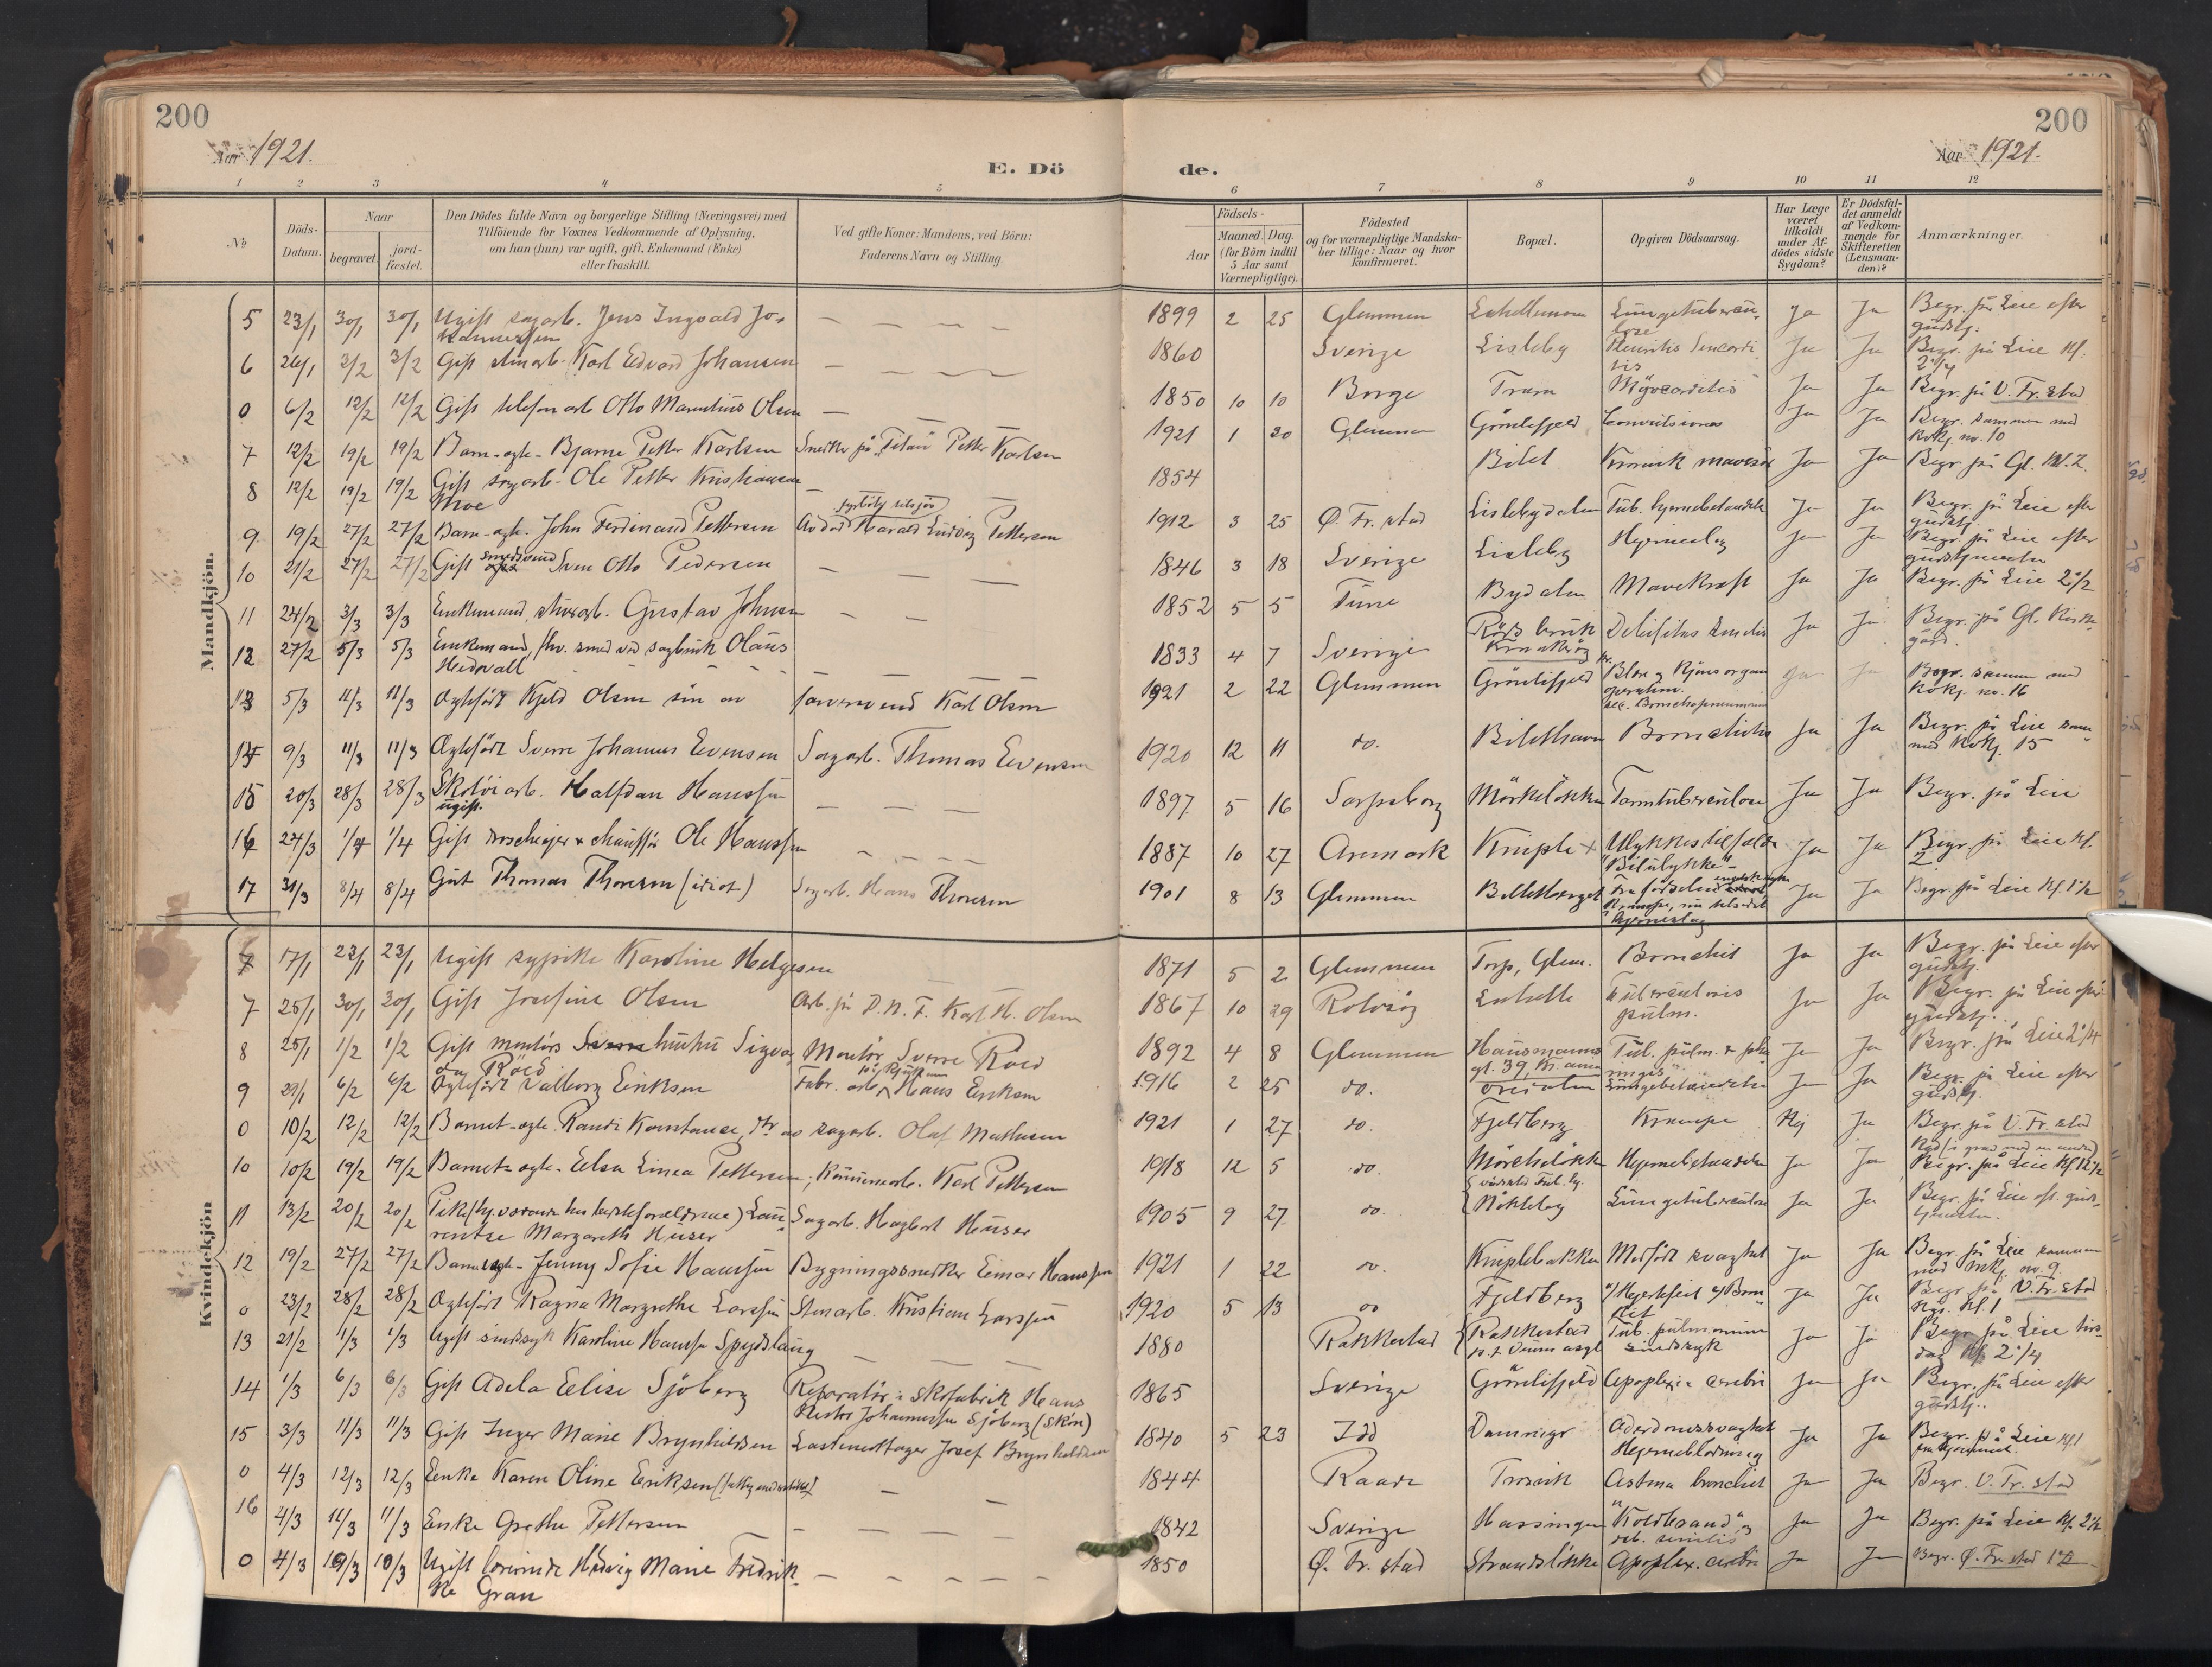 200
200
Aar 1921.
Aar 1921.
E. Dö
de.
1 2 3 4 5 6 7 8 9 10 11 12
No
Döds-
Datum.
Naar
begravet.
jord-
fæstet.
Den Dödes fulde Navn og borgerlige Stilling (Næringsvei) med
Tilföiende for Voxnes Vedkommende af Oplysning,
om han (hun) var ugift, gift, Enkemand (Enke)
eller fraskilt.
Ved gifte Koner: Mandens, ved Börn:
Faderens Navn og Stilling.
Födsels-
Aar
Maaned. Dag.
(for Börn indtil
5 Aar samt
Værnepligtige).
Födested
og for værnepligtige Mandska-
ber tillige: Naar og hvor
konfirmeret.
Bopæl.
Opgiven Dödsaarsag.
Har Læge
været
tilkaldt
under Af-
dödes sidste
Sygdom?
Er Dödsfal-
det anmeldt
af Vedkom-
mende for
Skifteretten
(Lensman-
den)?
Anmærkninger.
Mandkjön.
5 23/1 30/1 30/1 Ugift sagarb. Jens Ingvald Jo- 1899 2 25 Glemmen Lungetubercu- Ja Ja Begr. på Leie efter
hannessen lose gudstj.
6 26/1 3/2 3/2 Gift stenarb. Karl Edvard Johansen 1860 Sverige Lisleby Ja Ja Begr. på Leie kl.
0 6/2 12/2 12/2 Gift telefonarb Otto Marentius Olsen 1850 10 10 Borge Trara Myocarditis Ja Ja Begr. på V. Fr.stad
7 12/2 19/2 19/2 Barn-egte- Bjarne Petter Karlsen Snekker på "Titan" Petter Karlsen 1921 1 30 Glemmen Grönlifjeld Convulsiones Ja Ja Begr. sammen med
Kvkj. no. 10
8 12/2 19/2 19/2 Gift sagarb- Ole Petter Kristiansen 1854 Bilet Kronisk mavesår Ja Ja Begr på Gl. kl. 2
Moe
9 19/2 27/2 27/2 Barn-egte- John Ferdinand Pettersen Harald Ludvig Pettersen 1912 3 25 Ø. Fr. stad Lislebydalen Tub. hjernebetændelse Ja Ja Begr. på Leie efter
gudstj.
10 21/2 27/2 27/2 Gift Sven Otto Pedersen 1846 3 18 Sverige Lisleby Hjerneslag Ja Ja Begr på Leie efter
gudstjenesten
11 24/2 3/3 3/3 Enkemand Gustav Johnsen 1852 5 5 Tune Bydalen Mavekræft Ja Ja Begr. på Leie 2 1/2
12 27/2 5/3 5/3 Enkemand, fhv. smed ved sagbruk Olaus 1833 4 7 Sverige Röds bruk Ja Ja Begr. på Gl. Kirke-
Hedvall Kråkeröy gård.
13 5/3 11/3 11/3 Ægtefödt Kjeld Olsen sön av farversvend Karl Olsen 1921 2 22 Glemmen Grönlifjeld Ja Ja Begr. sammen med
operation. Kvkj. no. 16
14 9/3 11/3 11/3 Ægtefödt Sverre Johannes Evensen Sagarb. Thomas Evensen 1920 12 11 do. Bilethavn Bronchitis Ja Ja Begr. på Leie sam-
med Kvkj. 15
15 20/3 28/3 28/3 Skotöiarb. Halfdan Hanssen 1897 5 16 Sarpsborg Mörkelökken Tarmtuberculose Ja Ja Begr. på Leie
ugift.
16 27/3 1/4 1/4 Gift droscheejer & chaufför Ole Hanssen 1887 10 27 Aremark Kniple Ulykkestilfælde Ja Ja Begr. på Leie kl.
"Bilulykke" 2
17 31/3 8/4 8/4 Gut Thomas Thoresen (idiot) Sagarb. Hans Thoresen 1901 8 13 Glemmen Billetberget Fra födselen Ja Ja Begr. på Leie kl. 1 1/2
Hjerneslag
Kvindekjön
17/1 23/1 23/1 Ugift sypike Karoline Helgesen 1871 5 2 Glemmen Torp, Glem. Bronchit Ja Ja Begr. på Leie efter
gudstj.
7 25/1 30/1 30/1 Gift Josefine Olsen Arb. på D.N.F. Karl H. Olsen 1867 10 29 Rolvsöy Tuberculosis Ja Ja Begr. på Leie efter
pulm. gudstj.
8 25/1 1/2 1/2 Gift montörs hustru Sigva- Montör Sverre Röed 1892 4 8 Glemmen Hausmanns- Tub. pulm. Ja Ja Begr. på Leie 2 1/4
Röed gt. 39, Kr.ania
9 29/1 6/2 6/2 Ægtefödt Valborg Eriksen Fabr. arb. Hans Eriksen 1916 2 25 do. Lungebetændelse Ja Ja Begr. på Leie efter
gudstj.
0 10/2 12/2 12/2 Barnet-egte- Randi Konstanse, dtr av sagarb. Olaf Mathisen 1921 1 27 do. Fjeldberg Krampe Nej Ja Begr. på V. Fr. stad
10 10/2 19/2 19/2 Barnet-egte- Elsa Linea Pettersen; Kommunearb. Karl Pettersen 1918 12 5 do. Mörchelökk Hjernebetændelse Ja Ja Begr. på Leie
11 13/2 20/2 20/2 Pike (hj.værende hos besteforældrene) Lau- Sagarb. Hagbart Huser 1905 9 27 do. Nökleby Lungetuberculose Ja Ja Begr. på Leie eft. guds-
rentse Margareth Huser tjenesten.
12 19/2 27/2 27/2 Barn-egte- Jenny Sofie Hanssen Bygningssnekker Einar Hanssen 1921 1 22 do. Kniplebakken Medfödt svaghet Ja Ja Begr. på Leie sammen
med Mkj. no. 9
0 23/2 28/2 28/2 Ægtefödt Ragna Margrethe Larssen Stenarb. Kristian Larssen 1920 5 13 do Fjeldberg Ja Ja Begr på V. Fr. stad
kl. 1
13 21/2 1/3 1/3 Ugift sindssyk Karoline Hansen Spydslaug 1880 Rakkestad Rakkestad Tub. pulmonum Ja Ja Begr på Leie tirs-
p.t. Veum asyl sindssyk dag kl. 2 1/4
14 1/3 6/3 6/3 Gift Adela Elise Sjöberg Reparatör i skofabrik Hans 1865 Sverige Grönlifjeld Apoplexia cerebri Ja Ja Begr. på Leie efter
Johannessen Sjöberg (Skön) gudstj.
15 3/3 11/3 11/3 Gift Inger Marie Brynhildsen Lastemottager Josef Brynhildsen 1840 5 23 Idd Damvigr Alderdomssvaghet Ja Ja Begr. på Leie kl. 1
Hjerneblödning fra hjemmet.
0 4/3 12/3 12/3 Enke Karen Oline Eriksen 1844 Raade Trosvik Astma bronchit Ja Ja Begr. V. Fr. stad
16 4/3 11/3 11/3 Enke Grethe Pettersen 1842 Sverige Hassingen "Koldbrand" Ja Ja Begr. på Leie kl. 2 1/2
0 4/3 10/3 10/3 Ugift lærerinde Hedvig Marie Fredrik- 1850 Ø. Fr. stad Strandslökke Apoplex. cerebri Ja Ja Begr. Ø. Fr. stad
ke Gran